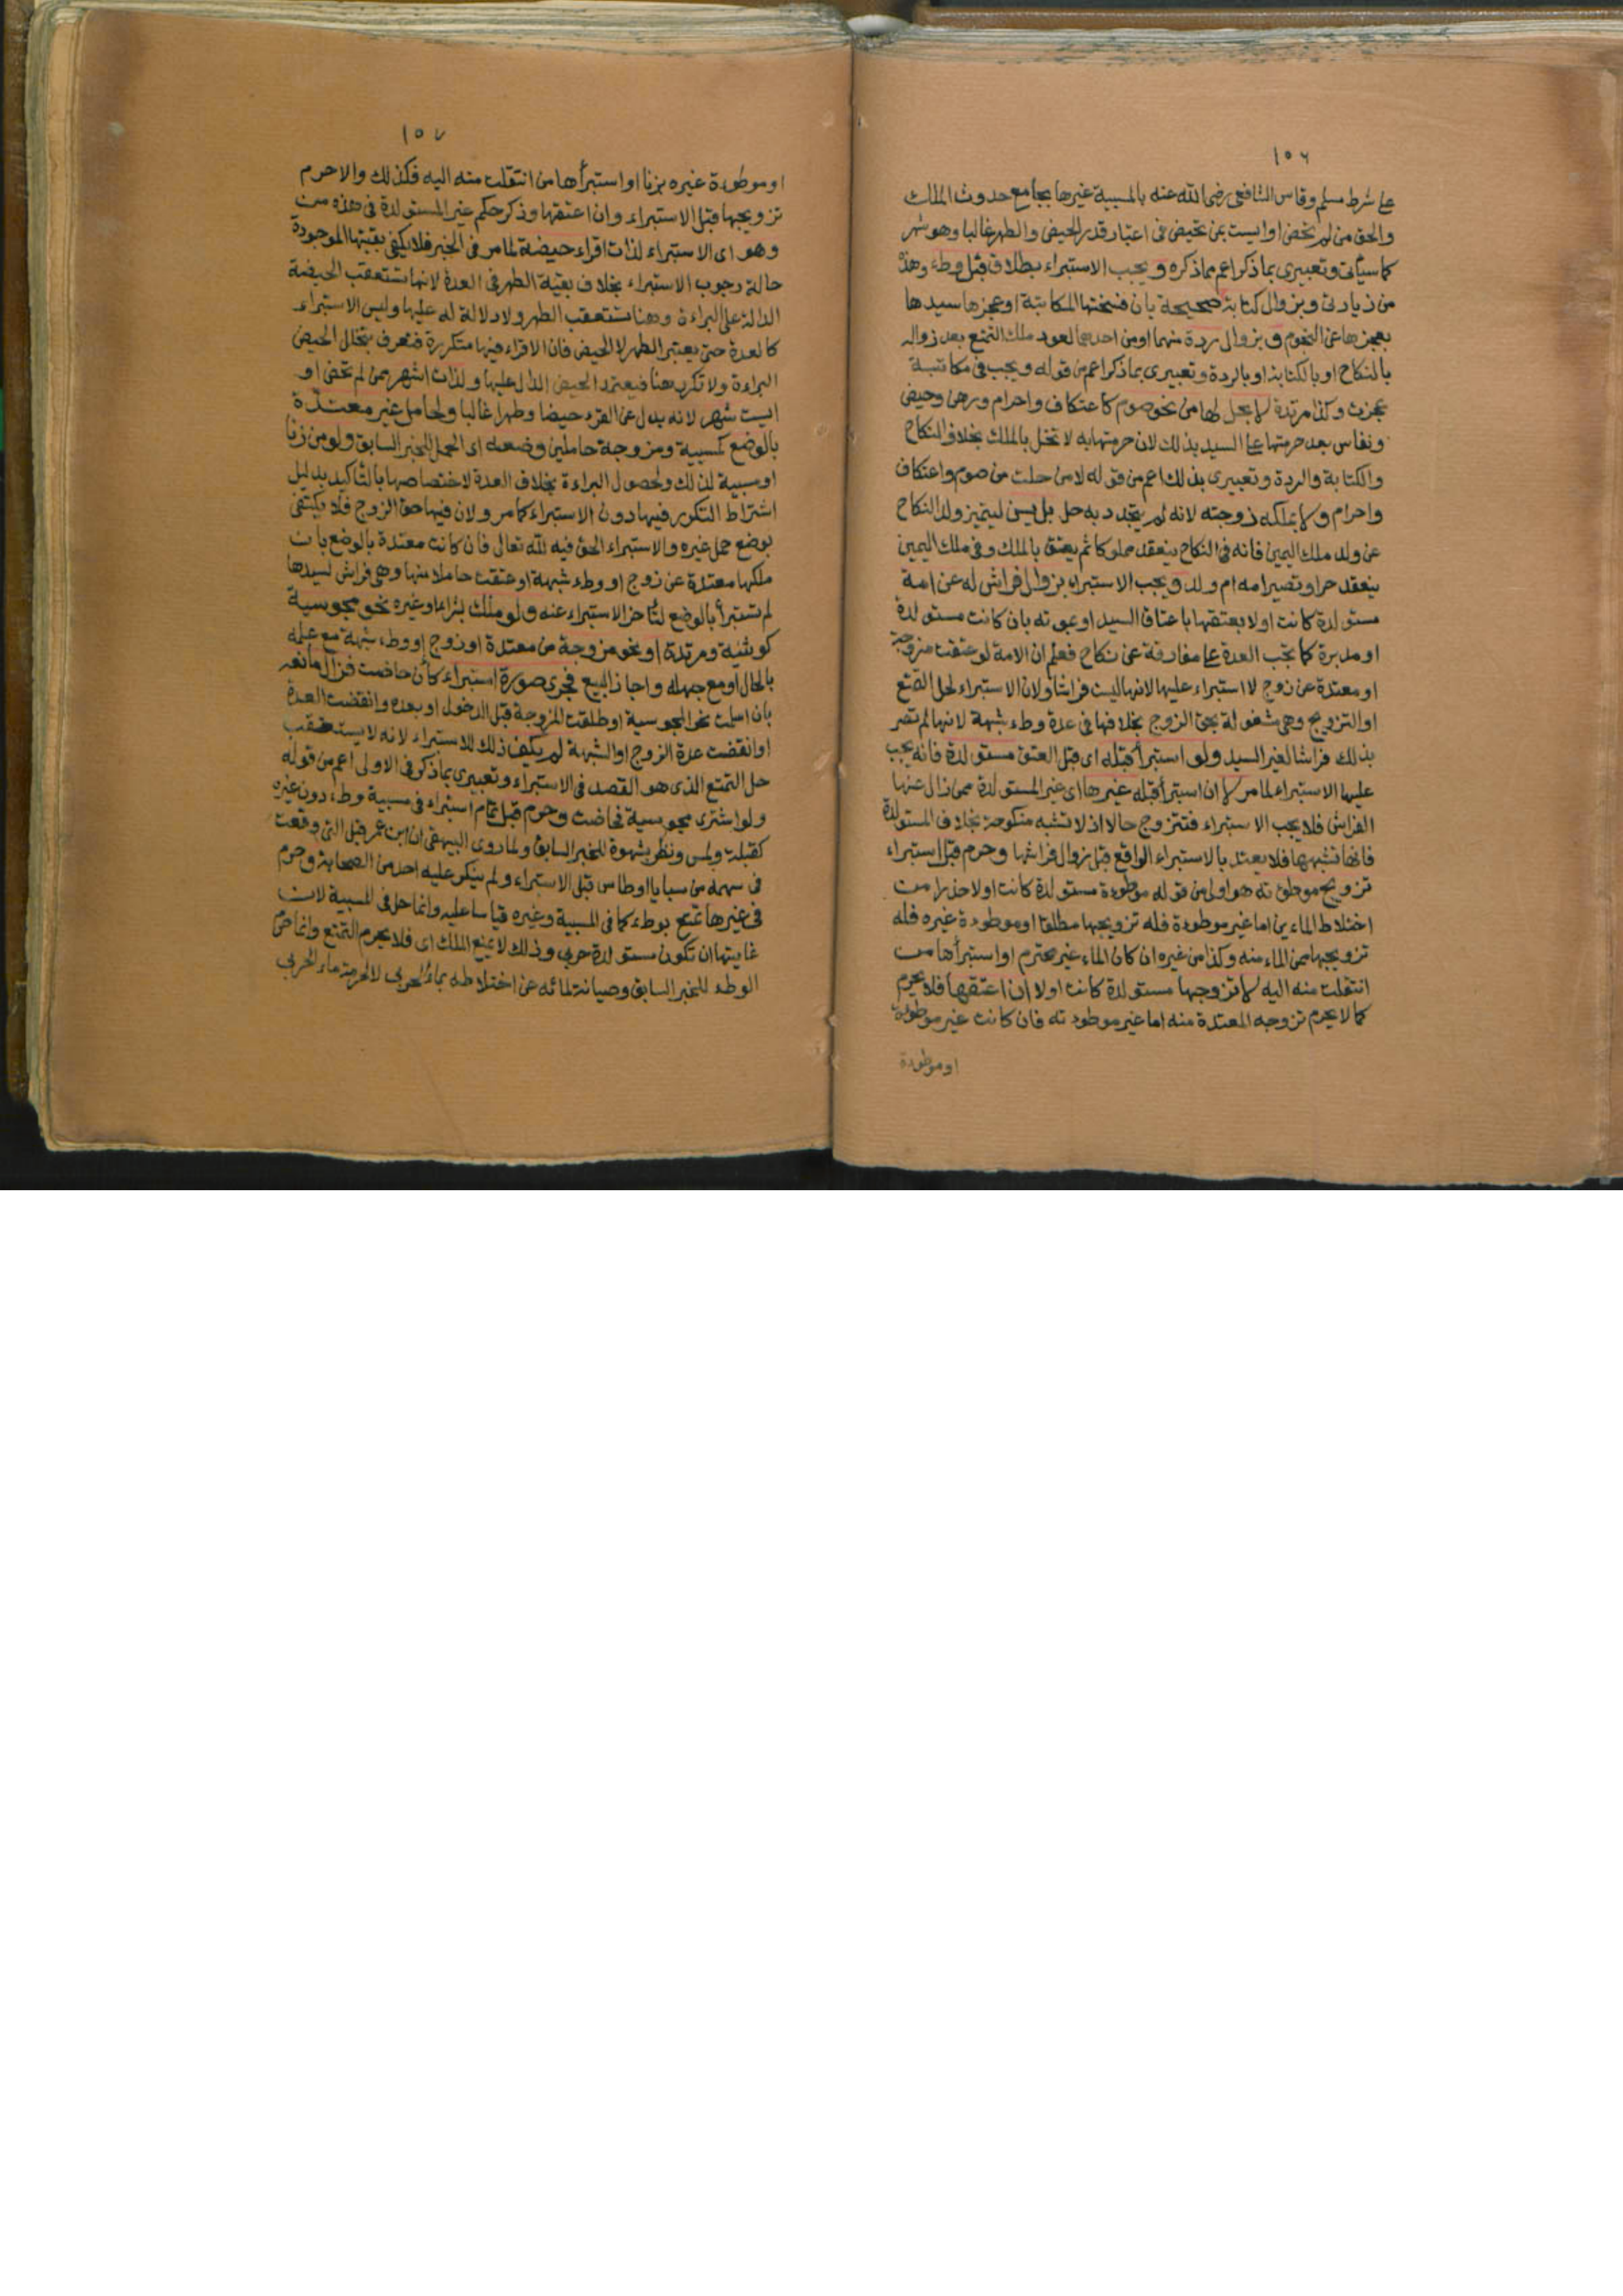 ١٥٦
على شرط مسلم وقاس الشافعي رضي الله عنه بالمسبية غيرها بجامع حدوث الملك
والحق من لم تحض او ايست بمن تحيض في اعتبار قدر الحيض والطهر غالبا وهو شهر
كما سيأتي وتعبيري بما ذكر اعم مما ذكره و يجب الاستبراء بطلاق قبل وطء وهذه
من زيادتي وبزوال كتابة صحيحة بان فسختها المكاتبة او عجزها سيدها
بعجزها عن النجوم و بزوال ردة منهما او من احدهما لعود ملك التمتع بعد زواله
بالنكاح او بالكتابة او بالردة وتعبيري بما ذكر اعم من قوله ويجب في مكاتبة
عجزت وكذا مرتدة لا بحل لها من نحو صوم كاعتكاف واحرام ورهن وحيض
ونفاس بعد حرمتها على السيد بذلك لان حرمتها به لا تخل بالملك بخلاف النكاح
والكتابة والردة وتعبيري بذلك اعم من قوله لا من حلت من صوم واعتكاف
واحرام و لا بملكه زوجته لانه لم يتجدد به حل بل يسن ليتميز ولد النكاح
عن ولد ملك اليمين فانه في النكاح ينعقد مملوكا ثم يعتق بالملك وفي ملك اليمين
ينعقد حرا وتصير امه ام ولد و يجب الاستبراء بزوال فراش له عن امة
مستولدة كانت اولا بعتقها باعتاق السيد او بموته بان كانت مستولدة
او مدبرة كما تجب العدة على مفارقة عن نكاح فعلم ان الامة لو عتقت مزوجة
او معتدة عن زوج لا استبراء عليها لانها ليست فراشا ولان الاستبراء لحل التمتع
او التزويج وهي مشغولة بحق الزوج بخلافها في عدة وطء شبهة لانها لم تصر
بذلك فراشا لغير السيد ولو استبرأ قبله اي قبل العتق مستولدة فانه يجب
عليها الاستبراء لما مر لا ان استبرأ قبله غيرها اي غير المستولدة ممن زال عنها
الفراش فلا يجب الاستبراء فتتزوج حالا اذ لا تشبه منكوحة بخلاف المستولدة
فانها تشبهها فلا يعتد بالاستبراء الواقع قبل زوال فراشها وحرم قبل استبراء
تزويج موطوءته هو اولى من قوله موطوءة مستولدة كانت اولا حذرا من
اختلاط الماءين اما غير موطوءة فله تزويجها مطلقا او موطوءة غيره فله
تزويجها ممن الماء منه وكذا من غيره ان كان الماء غير محترم او استبرأها من
انتقلت منه اليه لا تزوجها مستولدة كانت اولا ان اعتقها فلا يحرم
كما لا يحرم تزوجه المعتدة منه اما غير موطوءته فان كانت غير موطوءة
او موطوءة
١٥٧
او موطوءة غيره بزنا او استبرأها من انتقلت منه اليه فكذلك والا حرم
تزويجها قبل الاستبراء وان اعتقها وذكر حكم غير المستولدة في هذه من
وهو اي الاستبراء لذات اقراء حيضة لما مر في الخبر فلا يكفي بقيتها الموجودة
حالة وجوب الاستبراء بخلاف بقية الطهر في العدة لانها تستعقب الحيضة
الدالة على البراءة وهنا تستعقب الطهر ولا دلالة له عليها وليس الاستبراء
كالعدة حتى يعتبر الطهر لا الحيض فان الاقراء فيها متكررة فتعرف بتخلل الحيض
البراءة ولا تكرر هنا فيعتمد الحيض الدال عليها ولذات اشهر ممن لم تحض او
ايست شهر لانه بدل عن القرء حيضا وطهرا غالبا ولحامل غير معتدة
بالوضع كمسبية ومزوجة حاملين وضعه اي الحمل للخبر السابق ولو من زنا
او مسبية لذلك ولحصول البراءة بخلاف العدة لاختصاصها بالتأكيد بدليل
اشتراط التكرر فيها دون الاستبراء كما مر ولان فيها حق الزوج فلا يكتفى
بوضع حمل غيره والاستبراء الحق فيه لله تعالى فان كانت معتدة بالوضع بان
ملكها معتدة عن زوج او وطء شبهة او عتقت حاملا منها وهي فراش لسيدها
لم تستبرأ بالوضع لتأخر الاستبراء عنه ولو ملك بشراء او غيره نحو مجوسية
كوثنية ومرتدة او نحو مزوجة من معتدة او زوج او وطء شبهة مع علمه
بالحال او مع جهله واجاز البيع فجرى صورة استبراء كأن حاضت فزال مانعه
بان اسلمت نحو المجوسية او طلقت المزوجة قبل الدخول او بعده وانقضت العدة
او انقضت عدة الزوج او الشبهة لم يكف ذلك للاستبراء لانه لا يستعقب
حل التمتع الذي هو القصد في الاستبراء وتعبيري بما ذكر في الاولى اعم من قوله
ولو اشترى مجوسية فحاضت وحرم قبل تمام استبراء في مسبية وطء دون غيره
كقبلة ولمس ونظر بشهوة للخبر السابق ولما روى البيهقي ان ابن عمر قبل التي وقعت
في سهمه من سبايا اوطاس قبل الاستبراء ولم ينكر عليه احد من الصحابة وحرم
في غيرها تمتع بوطء كما في المسبية وغيره قياسا عليه وانما حل في المسبية لان
غايتها ان تكون مستولدة حربي وذلك لا يمنع الملك اي فلا يحرم التمتع وانما حرم
الوطء للخبر السابق وصيانة لمائه عن اختلاطه بماء الحربي لا لحرمة ماء الحربي